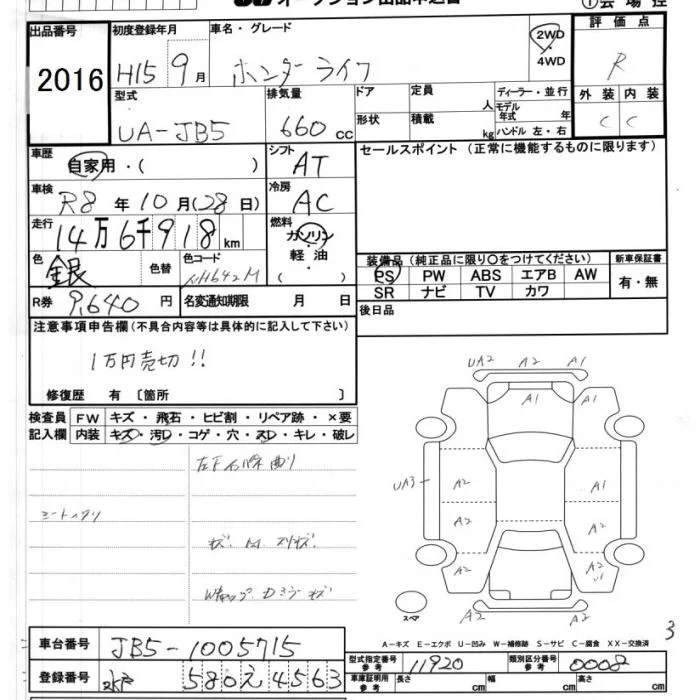 オークション出品申込書
①会場控
出品番号
2016
初度登録年月
H15年 9月
車名・グレード
ホンダ ライフ
2WD
・
4WD
評価点
R
外装 内装
C C
型式
UA-JB5
排気量
660 cc
ドア
形状
定員
人
積載
kg
ディーラー・並行
モデル年式 年
ハンドル 左・右
車歴
自家用・( )
シフト
AT
セールスポイント (正常に機能するものに限ります)
車検
R8年10月(28日)
冷房
AC
走行
14万6千918km
燃料
ガソリン
・
軽油
( )
色
銀
色替
色コード
NH642M
装備品(純正品に限り○をつけてください)
PS PW ABS エアB AW
SR ナビ TV カワ
新車保証書
有・無
R券 9,640円
名変通知期限 月 日
後日品
注意事項申告欄(不具合内容等は具体的に記入して下さい)
1万円売切!!
修復歴 有 〔箇所 〕
検査員記入欄
FW キズ・飛石・ヒビ割・リペア跡・×要
内装 キズ・汚レ・コゲ・穴・スレ・キレ・破レ
UA2 A2 A1
A1 A1
UA3 A2 A1
A2 A2
A2 A2
A2 A2
スペア
3
A-キズ E-エクボ U-凹み W-補修跡 S-サビ C-腐食 XX-交換済
車台番号 JB5-1005715
登録番号 水戸 580 え 4563
型式指定番号 参考 11920
類別区分番号 参考 0008
車庫証明用 参考 長さ cm 幅 cm 高さ cm